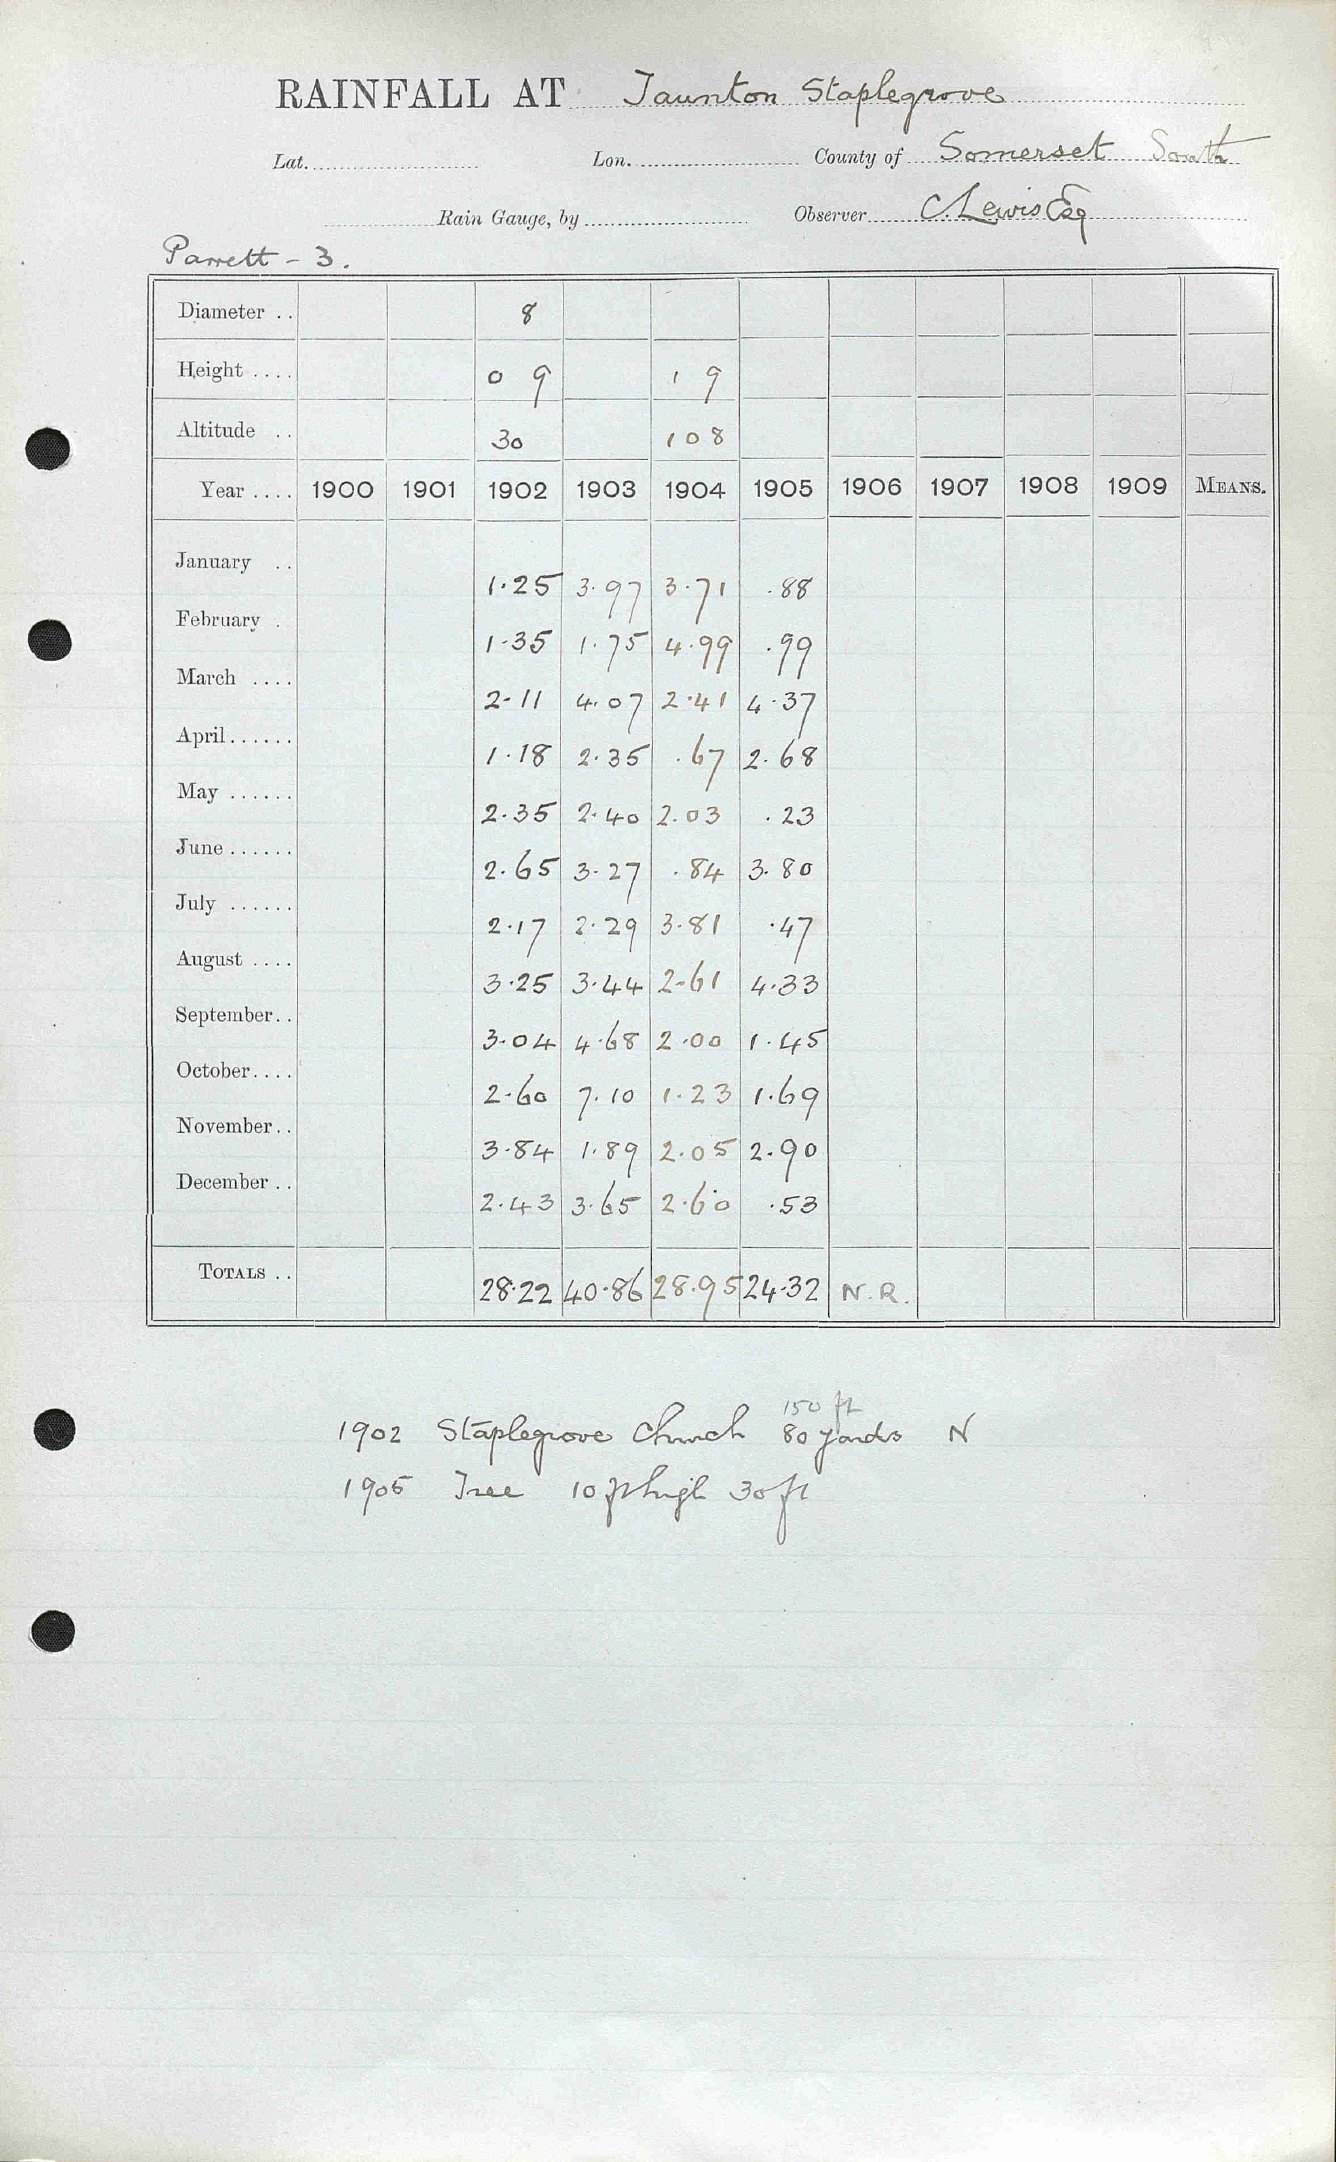 RAINFALL AT Taunton Staplegrove
Lat. Lon. County of Somerset South
Rain Gauge, by Observer C. Lewis Esq
Parrett - 3.
Diameter .. 8
Height .... 0 9 1 9
Altitude .. 30 108
Year .... 1900 1901 1902 1903 1904 1905 1906 1907 1908 1909 MEANS.
January .. 1.25 3.97 3.71 .88
February . 1.35 1.75 4.99 .99
March .... 2.11 4.07 2.41 4.37
April...... 1.18 2.35 .67 2.68
May ...... 2.35 2.40 2.03 .23
June ...... 2.65 3.27 .84 3.80
July ...... 2.17 2.29 3.81 .47
August .... 3.25 3.44 2.61 4.33
September.. 3.04 4.68 2.00 1.45
October.... 2.60 7.10 1.23 1.69
November.. 3.84 1.89 2.05 2.90
December .. 2.43 3.65 2.60 .53
TOTALS .. 28.22 40.86 28.95 24.32 N.R.
150 ft
1902 Staplegrove Church 80 yards N
1905 Tree 10 ft high 30 ft